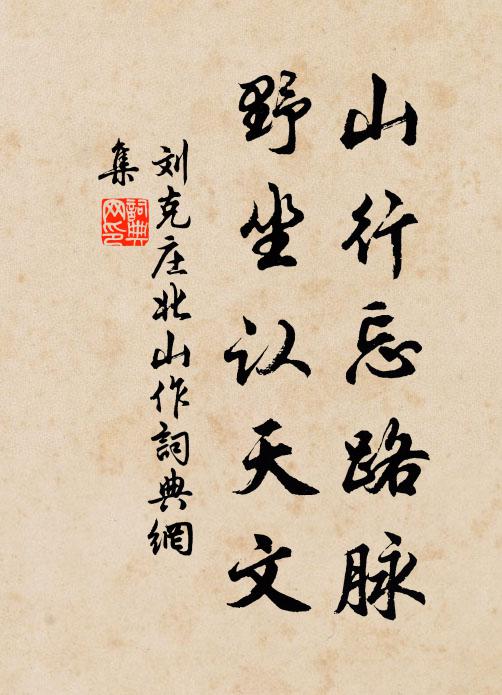 山行忘路脉
野坐认天文
刘克庄北山作词典網
集
詞典
网印